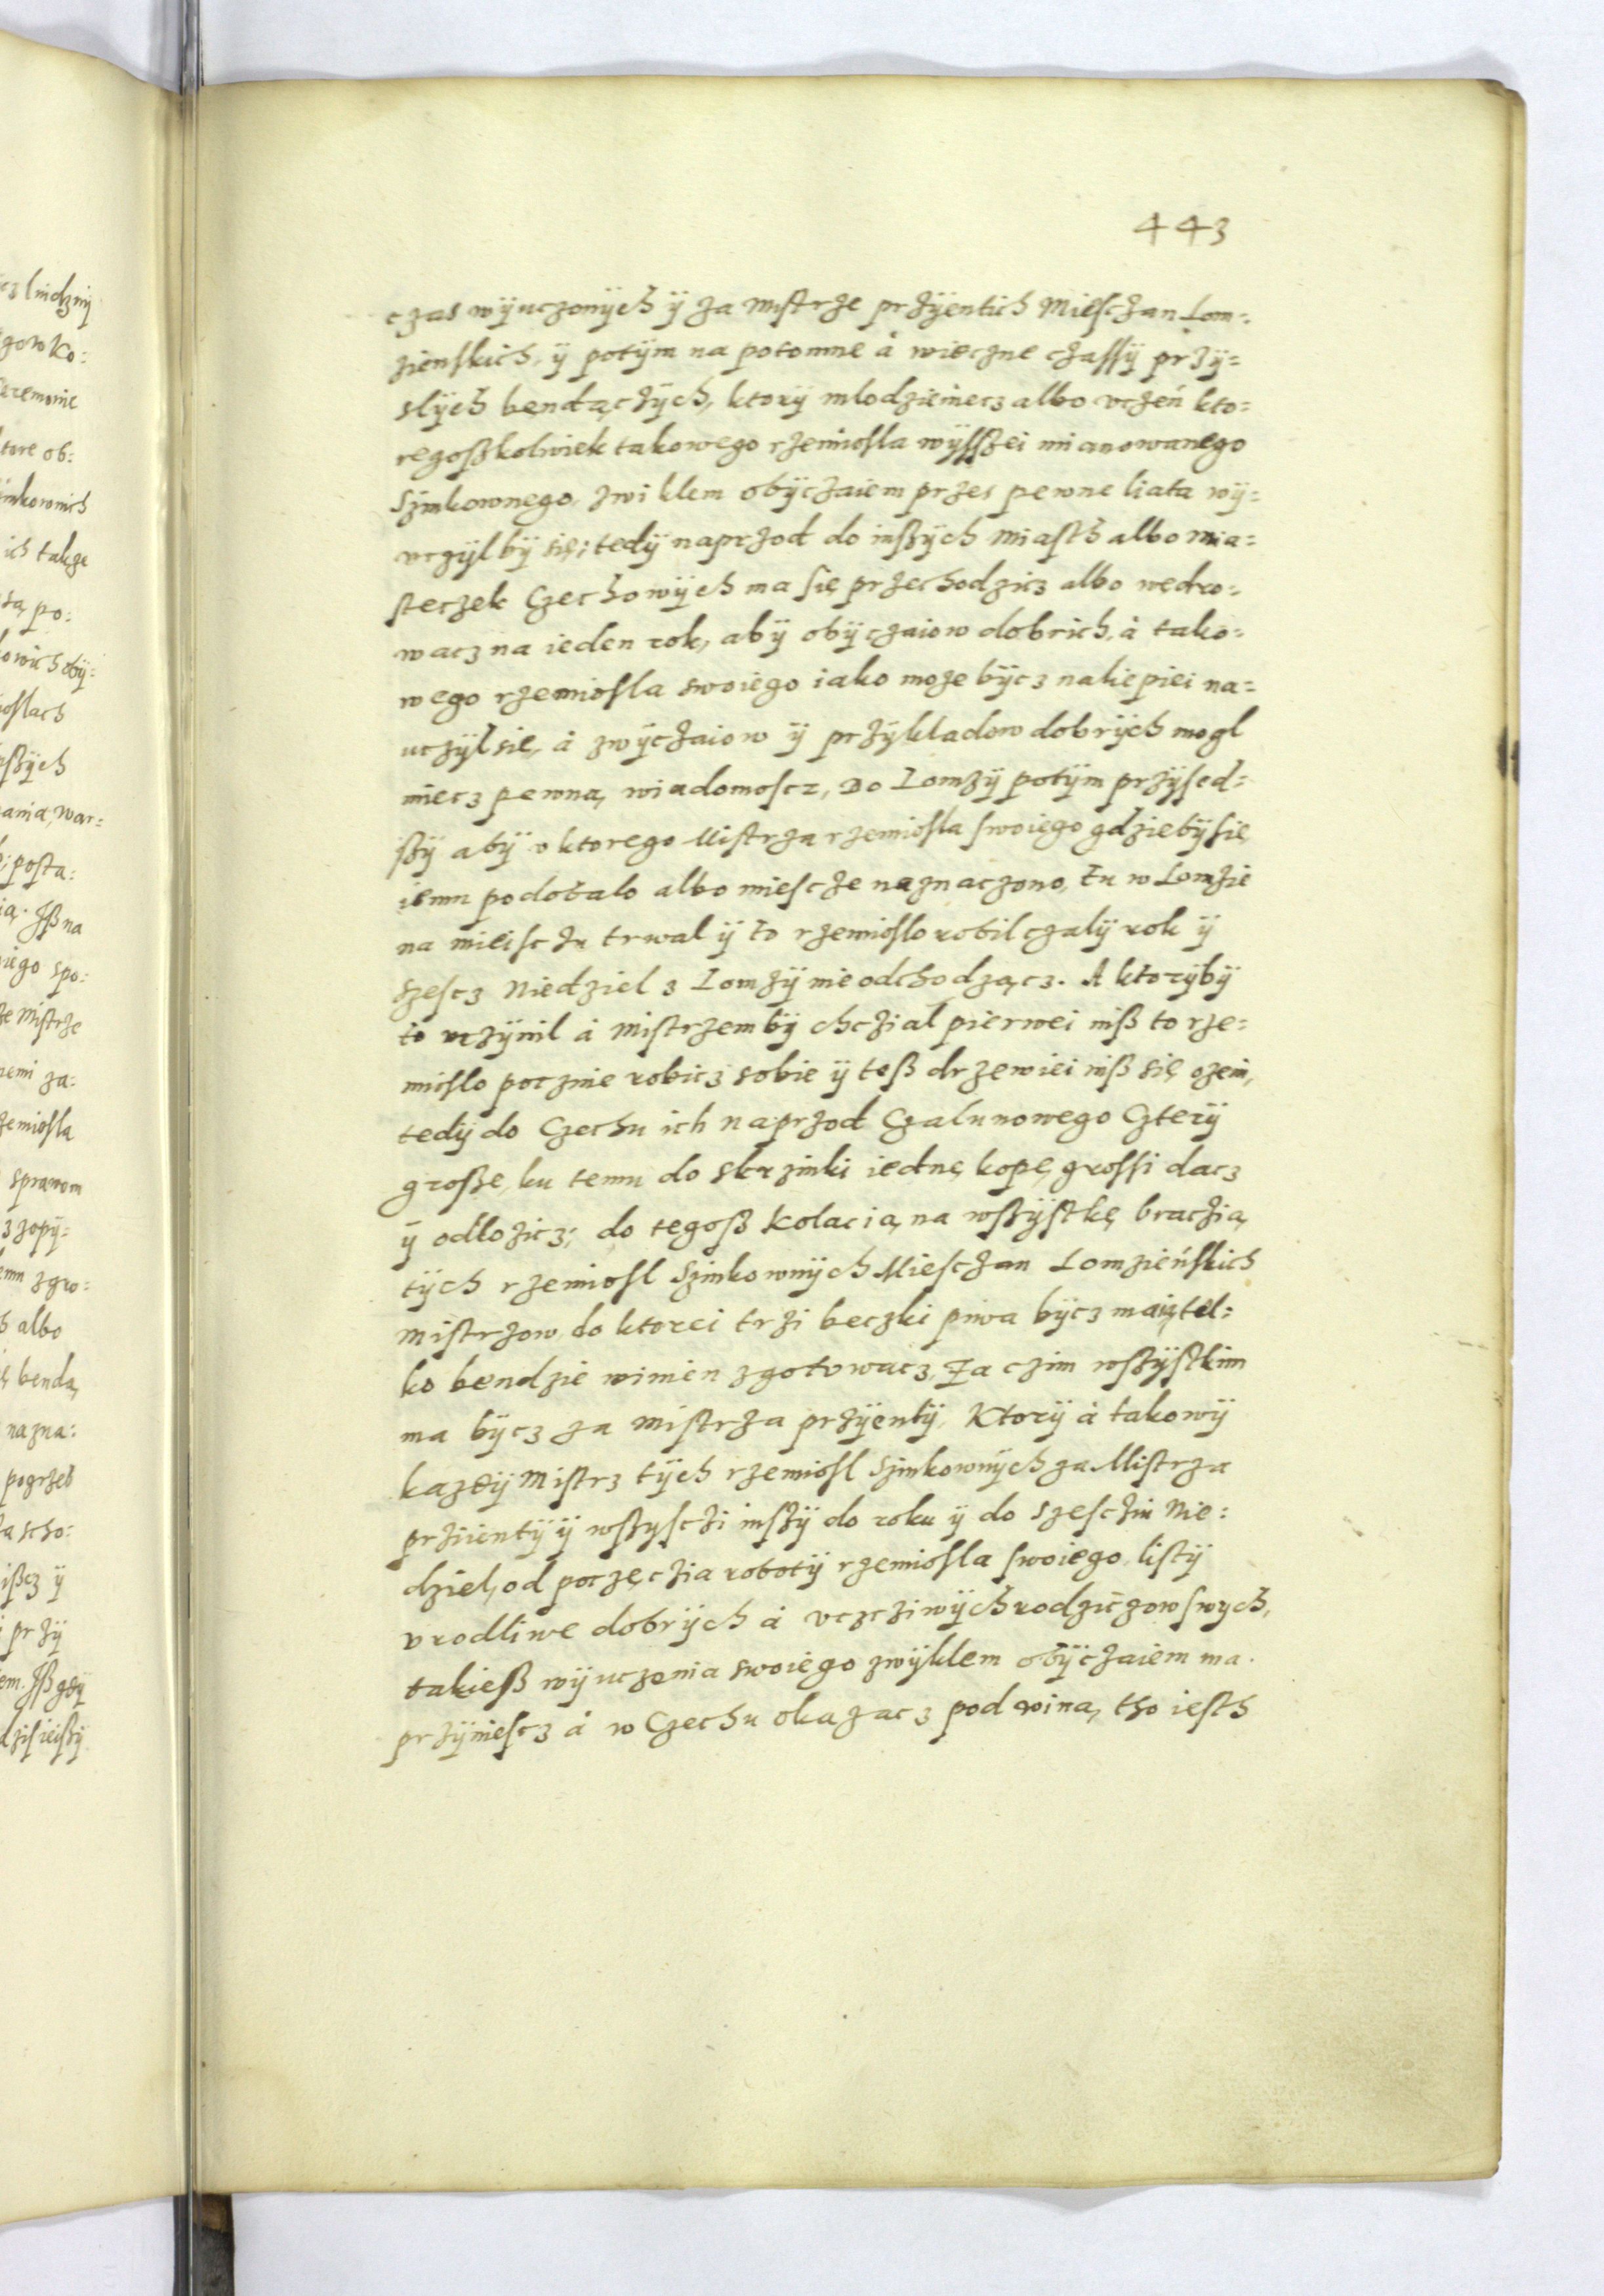 443
czas wÿuczonÿch ÿ za mistrze przÿentich Miesczan Lom=
zienskich, ÿ potÿm na potomne à wieczne czassÿ przÿ=
slÿch bendączÿch, ktorÿ mlodzieniecz albo vczeń kto=
regoßkolwiek takowego rzemiosla wÿsßei mianowanego
Szinkownego, zwiklem obÿczaiem przes pewne liata wÿ=
vczÿl bÿ się; tedÿ naprzod do inßÿch miasth albo mia=
steczek Czechowÿch ma się przechodzicz albo wędro=
wacz na ieden rok, abÿ obÿczaiow dobrich, à tako=
wego rzemiosla swoiego iako moze bÿcz naliepiei na=
uczÿl się, à zwÿczaiow ÿ przÿkladow dobrÿch mogl
miecz pewną wiadomoscz, Do Lomzÿ potÿm przÿsed=
ßÿ abÿ v ktorego Mistrza rzemiosla swoiego gdzie bÿ się
iemu podobalo albo miescze naznaczono, tu w Lomzie
na mieisczu trwal ÿ to rzemioslo robil czalÿ rok ÿ
szescz Niedziel z Lomzÿ nie odchodzącz. A ktorÿbÿ
to vczÿnil à mistrzem bÿ chczial pierwei niß to rze=
mioslo pocznie robicz sobie ÿ teß drzewiei niß się ozeni,
tedÿ do Czechu ich naprzod Czalunowego Czterÿ
große, ku temu do skrzinki iednę kopę grossi dacz
ÿ odlozicz; do tegoß Kolacią na wßÿstkę braczią
tÿch rzemiosl Szinkownÿch Miesczan Lomzieńskich
mistrzow, do ktorei trzi beczki piwa bÿcz maią, tÿl=
ko bendzie winien zgotowacz, Za czim wßÿstkim
ma bÿcz za mistrza przÿentÿ. Ktorÿ à takowÿ
kazdÿ Mistrz tÿch rzemiosl Szinkownÿch za Mistrza
prziientÿ ÿ wßÿsczi inßÿ do roku ÿ do szesczin Nie=
dziel, od poczęczia robotÿ rzemiosla swoiego, listÿ
vrodliwe dobrÿch à vczcziwÿch rodziczow swych,
takieß wÿuczenia swoiego zwÿklem obÿczaiem ma
przÿniescz à w Czechu okazacz pod winą, tho iesth